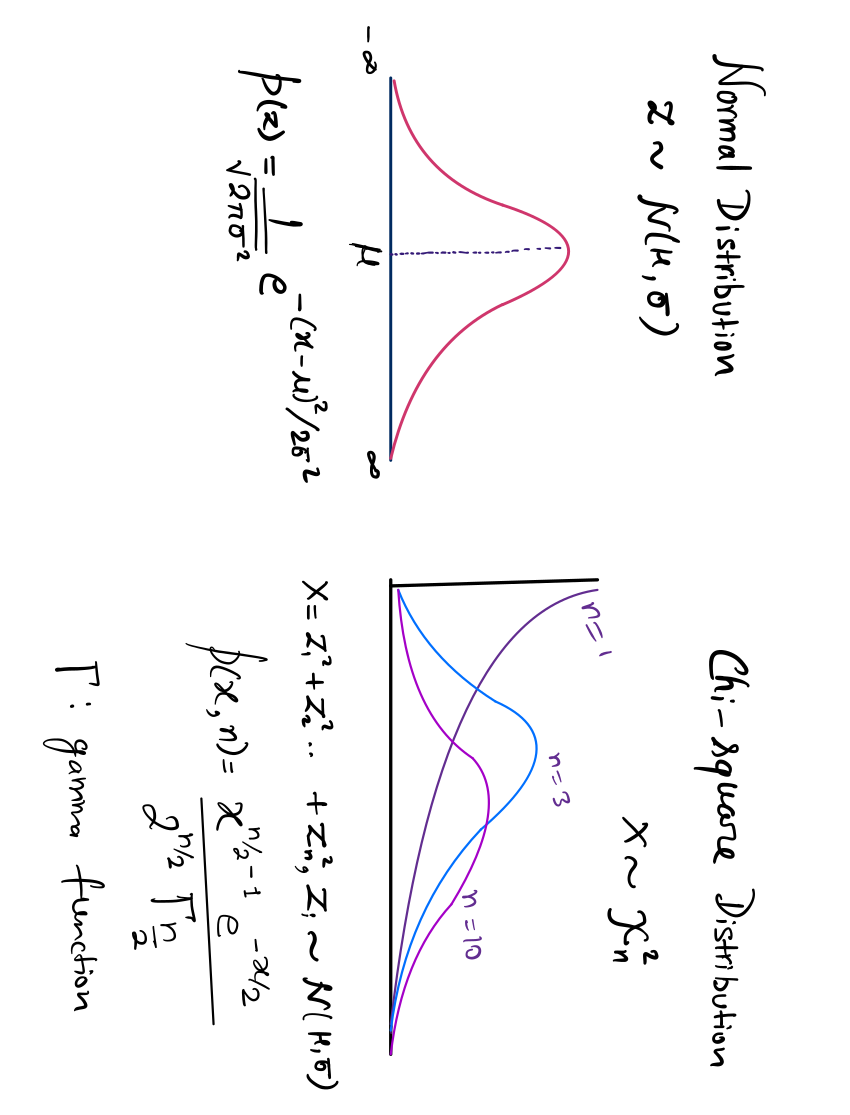 Normal Distribution
z ~ N(μ, σ)
-∞ μ ∞
p(z) = 1/√2πσ² e^-(x-μ)²/2σ²
Chi-square Distribution
X ~ χ²ₙ
n=1
n=3
n=10
X = Z₁² + Z₂² .. + Zₙ², Zᵢ ~ N(μ,σ)
p(x, n) = x^n/2-1 e^-x/2 / 2^n/2 Γn/2
Γ : gamma function